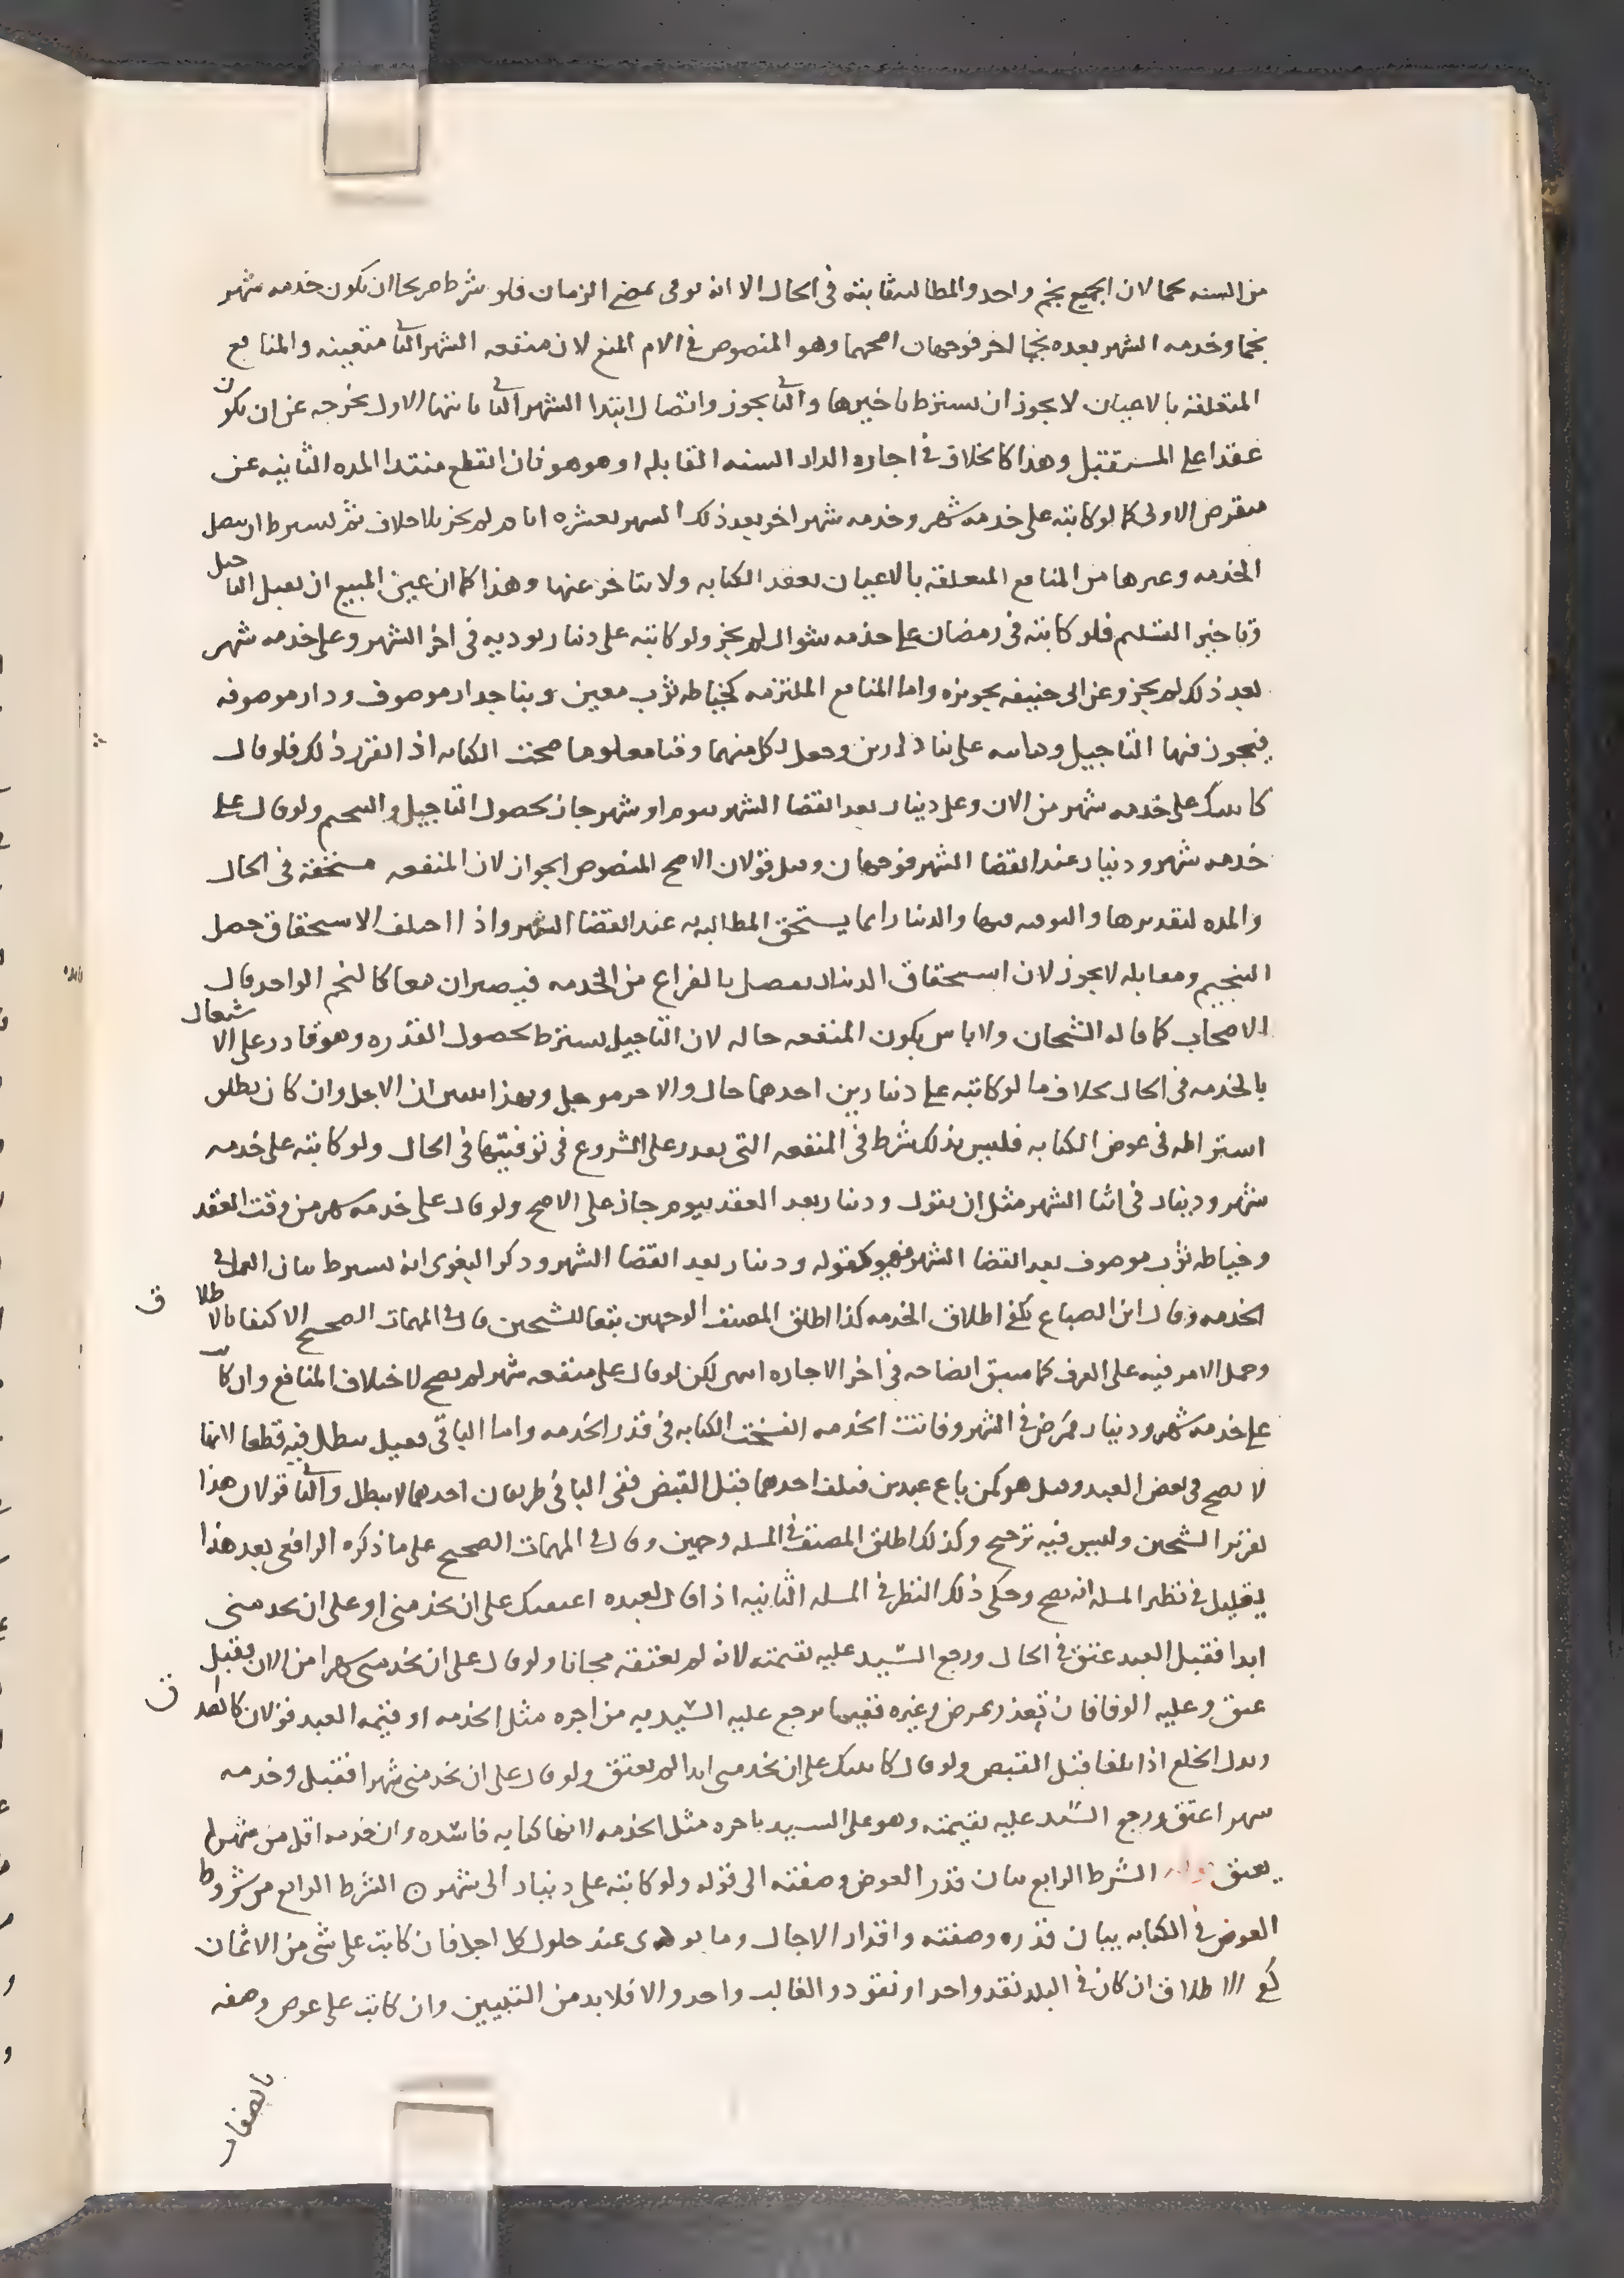 من السنه نجما لان الجميع نجم واحد والمطالبه ثابته في الحال الا انه يوفى بمضي الزمان فلو شرط صريحا ان تكون خدمه شهر
نجما وخدمه الشهر بعده نجما اخر فوجهان اصحهما وهو المنصوص في الام المنع لان منفعه الشهر الثاني متعينه والمنافع
المتعلقه بالاعيان لا يجوز ان يشترط تاخيرها والثاني يجوز واتصال ابتدا الشهر الثاني بانتها الاول يخرجه عن ان يكون
عقدا على المستقبل وهذا كالخلاف في اجاره الدار السنه القابله او هو هو فان انقطع مبتدا المده الثانيه عن
منقرض الاولى كما لو كاتبه على خدمه شهر وخدمه شهر اخر بعد ذلك الشهر بعشره ايام لم يجز بلا خلاف ثم يشترط ان يتصل
الخدمه وغيرها من المنافع المتعلقه بالاعيان بعقد الكتابه ولا يتاخر عنها وهذا كما ان عين المبيع لا يقبل التاجيل
وتاخير التسليم فلو كاتبه في رمضان على خدمه شوال لم يجز ولو كاتبه على دينار يوديه في اخر الشهر وعلى خدمه شهر
بعد ذلك لم يجز وعن ابي حنيفه تجويزه واما المنافع الملتزمه كخياطه ثوب معين وبنا جدار موصوف ودار موصوفه
فيجوز فيها التاجيل وكاتبه على بنا دارين وجعل لكل منهما وقتا معلوما صحت الكتابه اذا تقرر ذلك فلو قال
كاتبتك على خدمه شهر من الان وعلى دينار بعد انقضا الشهر بيوم او شهر جاز لحصول التاجيل والتنجيم ولو قال على
خدمه شهر ودينار عند انقضا الشهر فوجهان وقيل قولان الاصح المنصوص الجواز لان المنفعه مستحقه في الحال
والمده لتقديرها والتوفيه فيها والدينار انما يستحق المطالبه به عند انقضا الشهر واذا اختلف الاستحقاق حصل
التنجيم ومقابله لا يجوز لان استحقاق الدينار يتصل بالفراغ من الخدمه فيصيران معا كالنجم الواحد قال
الاصحاب كما قاله الشيخان ولا باس بكون المنفعه حاله لان التاجيل يشترط لحصول القدره وهو قادر على الاشتغال
بالخدمه في الحال بخلاف ما لو كاتبه على دينارين احدهما حال والاخر موجل وبهذا يتبين ان الاجل وان كان يطلق
اشتراطه في عوض الكتابه فليس ذلك شرط في المنفعه التي يقدر على الشروع في توفيتها في الحال ولو كاتبه على خدمه
شهر ودينار في اثنا الشهر مثل ان يقول ودينار بعد العقد بيوم جاز على الاصح ولو قال على خدمه شهر من وقت العقد
وخياطه ثوب موصوف بعد انقضا الشهر فهو كقوله ودينار بعد انقضا الشهر وذكر البغوى انه يشترط بيان العمل في
الخدمه وقال ابن الصباع يكفي اطلاق الخدمه كذا اطلق المصنف الوجهين تبعا للشيخين قال في المهمات الصحيح الاكتفا بالاطلاق
وحمل الامر فيه على العرف كما سبق ايضاحه في اخر الاجاره انتهى لكن لو قال على منفعه شهر لم يصح لاختلاف المنافع وان كاتب
على خدمه شهر ودينار فمرض في الشهر وفاتت الخدمه انفسخت الكتابه في قدر الخدمه واما الباقي فقيل يبطل فيه قطعا لانها
لا تصح في بعض العبد وقيل هو كمن باع عبدين فتلف احدهما قبل القبض ففي الباقي طريقان احدهما لا يبطل والثاني قولان هذا
تقرير الشيخين وليس فيه ترجيح وكذلك اطلق المصنف في المسله وجهين وقال في المهمات الصحيح على ما ذكره الرافعي بعد هذا
بقليل في نظير المسله انه يصح وحكى ذلك النظر في المسله الثانيه اذا قال لعبده اعتقتك على ان تخدمني او على ان تخدمني
ابدا فقبل العبد عتق في الحال ورجع السيد عليه بقيمته لانه لم يعتقه مجانا ولو قال على ان تخدمني شهرا من الان فقبل
عتق وعليه الوفا فان تعذر بمرض وغيره ففيما يرجع عليه السيد به من اجره مثل الخدمه او قيمه العبد قولان كالصداق
وبدل الخلع اذا تلفا قبل القبض ولو قال كاتبتك على ان تخدمني ابدا لم يعتق ولو قال على ان تخدمني شهرا فقبل وخدمه
شهرا عتق ورجع السيد عليه بقيمته وهو على السيد باجره مثل الخدمه لانها كتابه فاسده وان خدمه اقل من شهر لم
يعتق الشرط الرابع بيان قدر العوض وصفته الى قوله ولو كاتبه على دينار الى شهر ۞ الشرط الرابع من شروط
العوض في الكتابه بيان قدره وصفته واقدار الاجال وما يودى عند حلول كل اجل فان كاتب على شى من الاثمان
كفى الاطلاق ان كان في البلد نقد واحد او نقود والغالب واحد والا فلا بد من التبيين وان كاتب على عوض وصفه
بالصفات